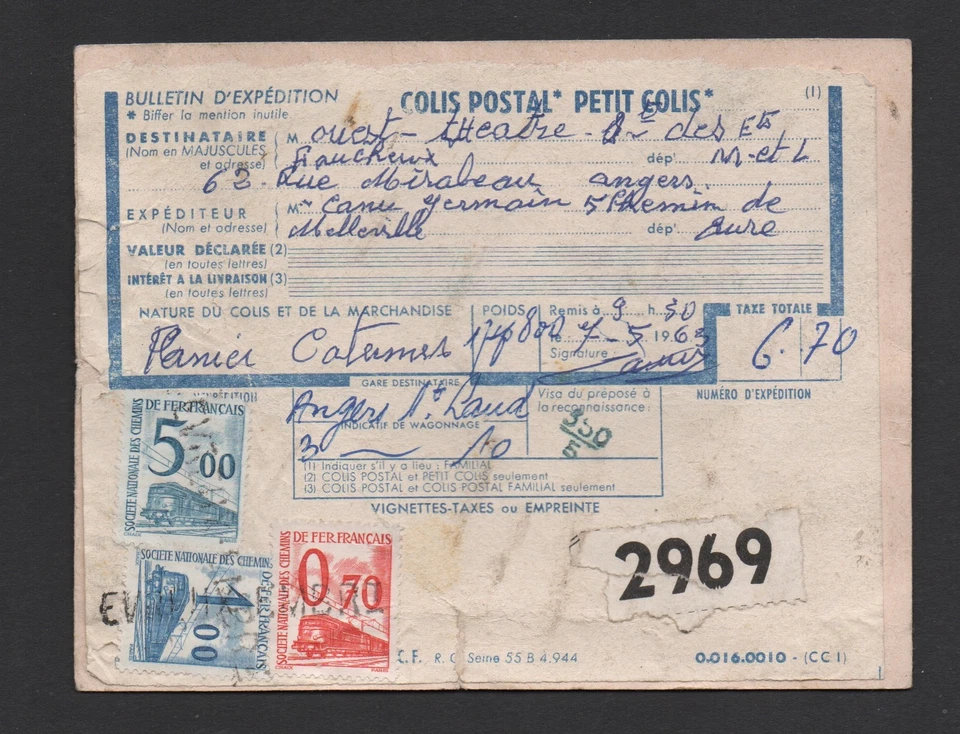 BULLETIN D'EXPÉDITION COLIS POSTAL* PETIT COLIS* (1)
* Biffer la mention inutile
DESTINATAIRE M Ouest-théâtre - des Ets
(Nom en MAJUSCULES et adresse) Faucheux dépt M-et-L
63 Rue Mirabeau Angers
EXPÉDITEUR M Canu Germain 5 Chemin de
(Nom et adresse) Melleville dépt Eure
VALEUR DÉCLARÉE (2)
(en toutes lettres)
INTÉRÊT A LA LIVRAISON (3)
(en toutes lettres)
NATURE DU COLIS ET DE LA MARCHANDISE POIDS Remis à 9 h. 30 TAXE TOTALE
Panier 800 le 7-5 1963 6.70
Signature Canu
GARE DESTINATAIRE NUMÉRO D'EXPÉDITION
Angers St Laud Visa du préposé à
la reconnaissance :
INDICATIF DE WAGONNAGE 350
3 10
(1) Indiquer s'il y a lieu : FAMILIAL
(2) COLIS POSTAL et PETIT COLIS seulement
(3) COLIS POSTAL et COLIS POSTAL FAMILIAL seulement
VIGNETTES-TAXES ou EMPREINTE
SOCIÉTÉ NATIONALE DES CHEMINS DE FER FRANÇAIS
5 00
SOCIÉTÉ NATIONALE DES CHEMINS DE FER FRANÇAIS
1 00
SOCIÉTÉ NATIONALE DES CHEMINS DE FER FRANÇAIS
0 70
2969
C.F. R. C. Seine 55 B 4.944 0.016.0010 - (CC1)